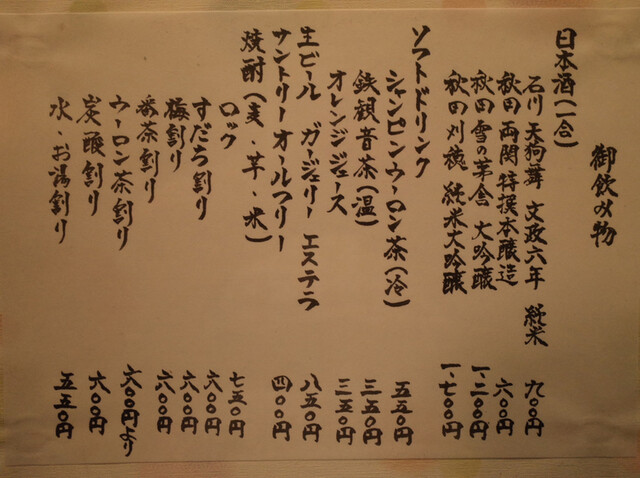 御飲み物
日本酒(一合)
石川 天狗舞 文政六年 純米 九〇〇円
秋田 両関 特撰本醸造 六〇〇円
秋田 雪の茅舎 大吟醸 一、二〇〇円
秋田 刈穂 純米大吟醸 一、七〇〇円
ソフトドリンク
シャンピンウーロン茶(冷) 五五〇円
鉄観音茶(温) 三五〇円
オレンジジュース 三五〇円
生ビール ガージェリー エステラ 八五〇円
サントリーオールフリー 四〇〇円
焼酎(麦、芋、米)
ロック 七五〇円
すだち割り 六〇〇円
梅割り 六〇〇円
番茶割り 六〇〇円
ウーロン茶割り 六〇〇円より
炭酸割り 六〇〇円
水、お湯割り 五五〇円